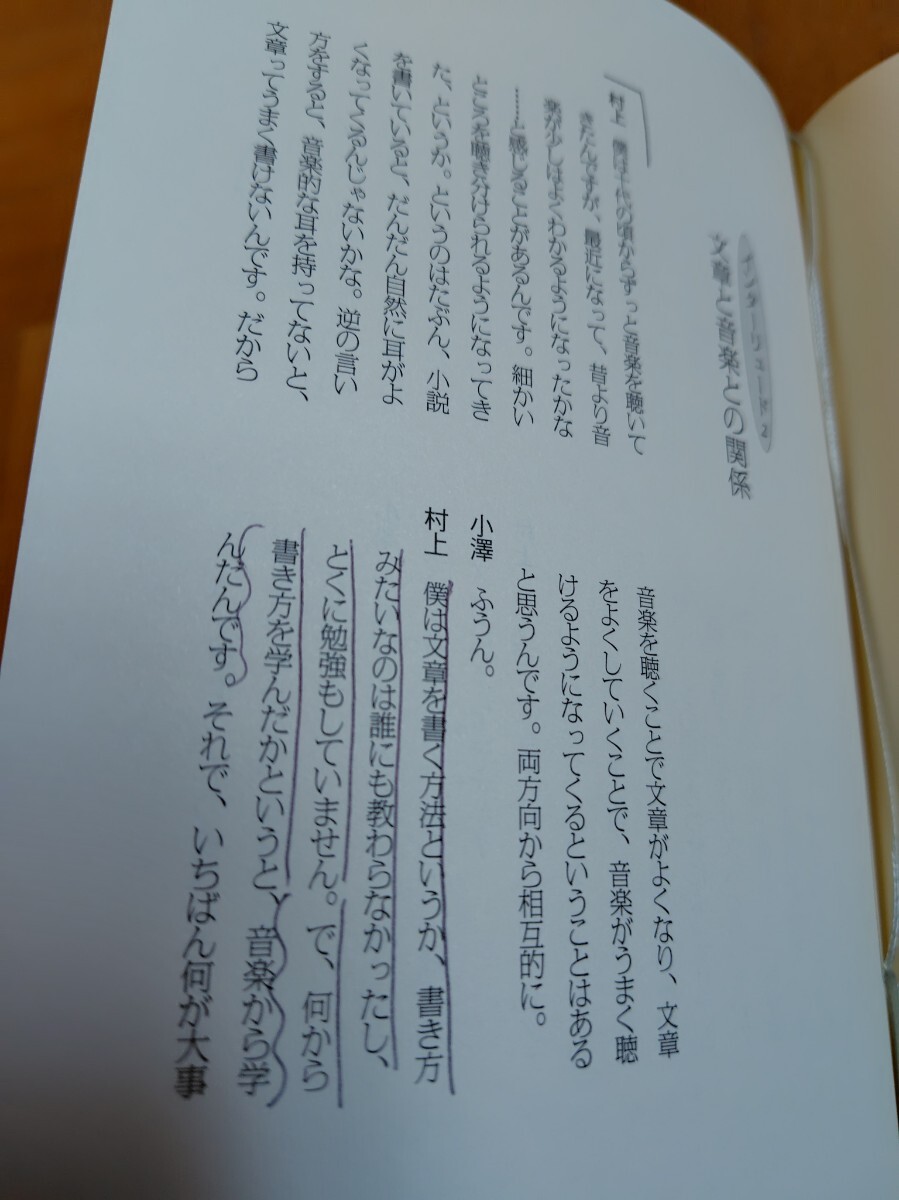 インターリュード2
文章と音楽との関係
村上 僕は十代の頃からずっと音楽を聴いて
きたんですが、最近になって、昔より音
楽が少しはよくわかるようになったかな
……と感じることがあるんです。細かい
ところを聴き分けられるようになってき
た、というか。というのはたぶん、小説
を書いていると、だんだん自然に耳がよ
くなってくるんじゃないかな。逆の言い
方をすると、音楽的な耳を持ってないと、
文章ってうまく書けないんです。だから
音楽を聴くことで文章がよくなり、文章
をよくしていくことで、音楽がうまく聴
けるようになってくるということはある
と思うんです。両方向から相互的に。
小澤 ふうん。
村上 僕は文章を書く方法というか、書き方
みたいなのは誰にも教わらなかったし、
とくに勉強もしていません。で、何から
書き方を学んだかというと、音楽から学
んだんです。それで、いちばん何が大事